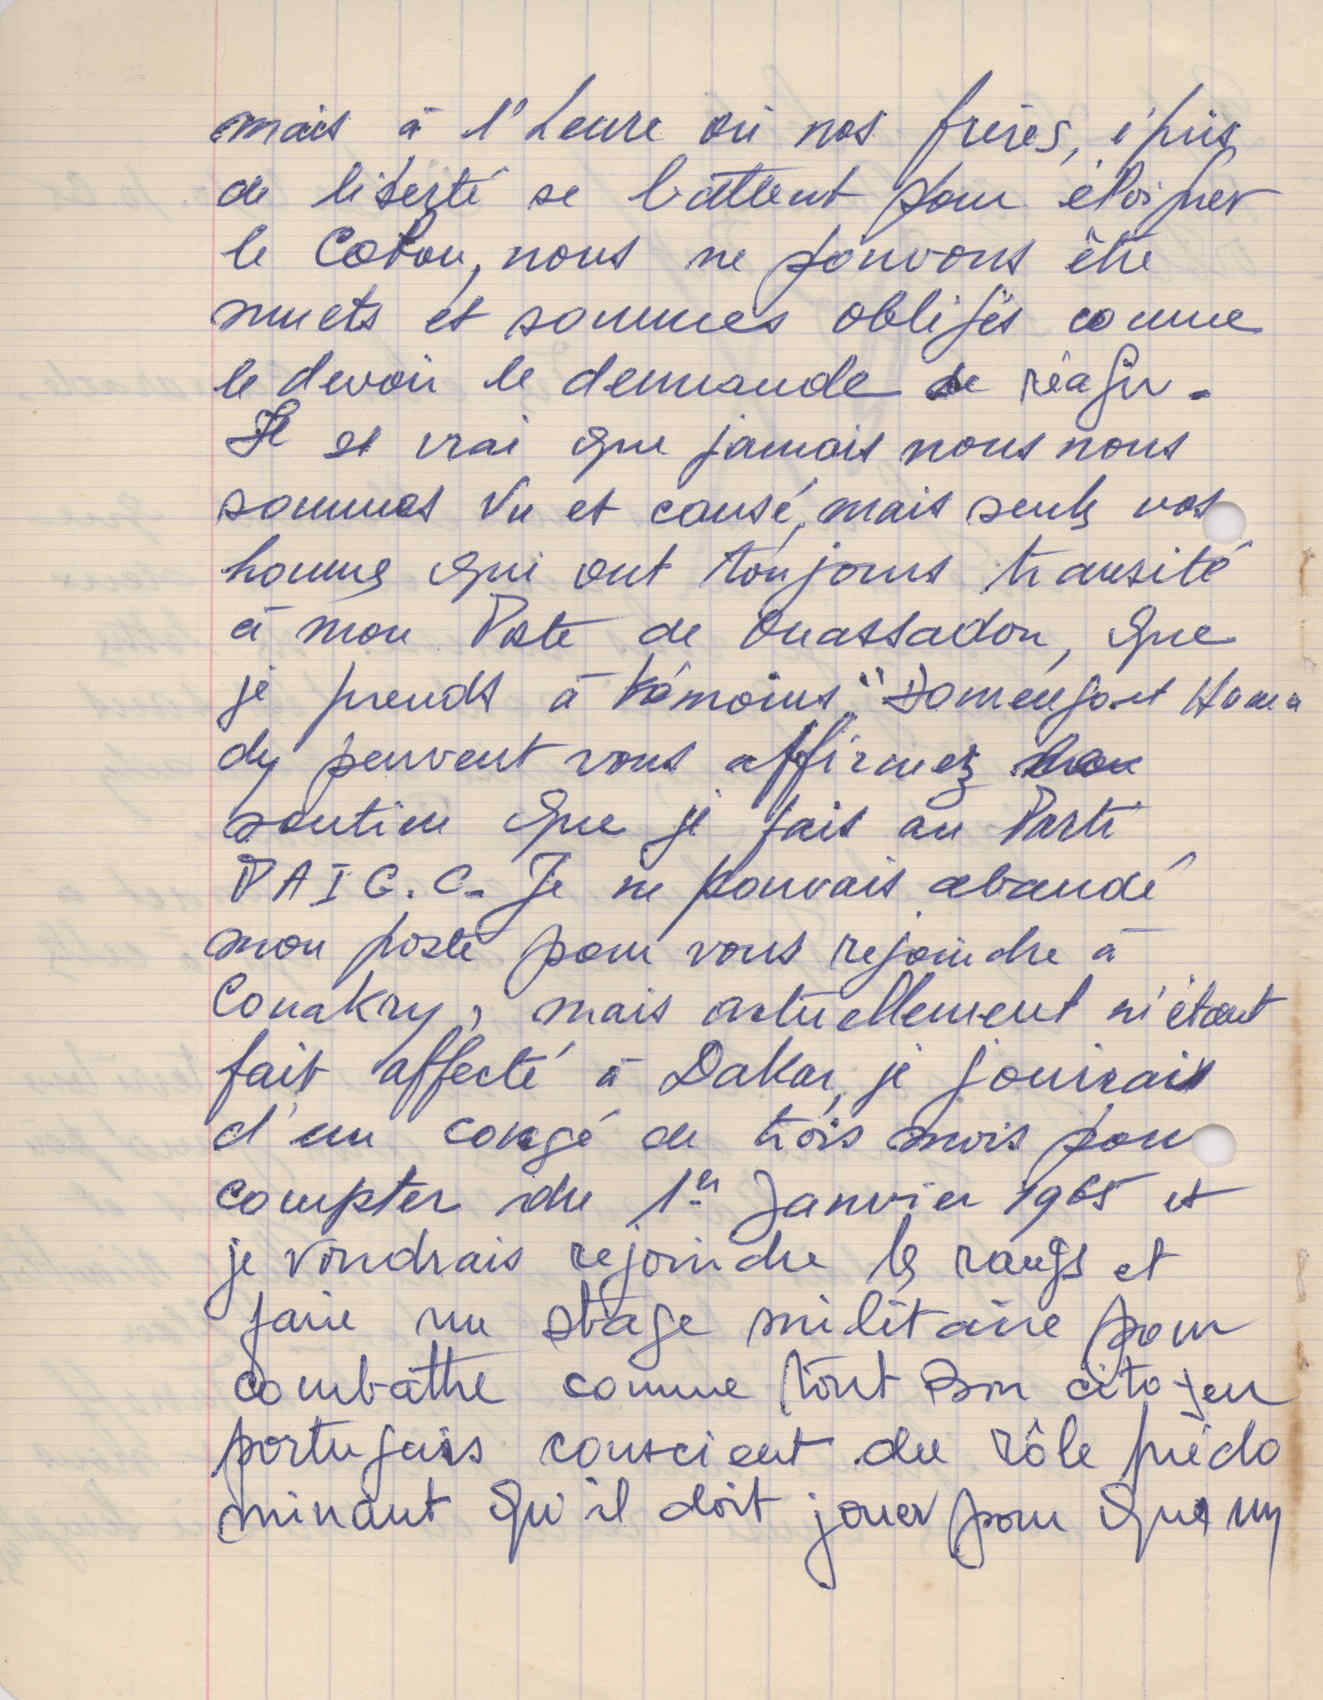 mais à l'heure où nos frères, épris
de liberté se battent pour éloigner
le Colon, nous ne pouvons être
muets et sommes obligés comme
le devoir le demande de réagir.
Il est vrai que jamais nous nous
sommes vu et causé, mais seuls vos
hommes qui ont toujours transité
à mon Poste de Ouassadou, que
je prends à témoins "Domengo et Hama
dy peuvent vous affirmez mon
soutien que je fais au Parti
P A I G. C. Je ne pouvais abandé
mon poste pour vous rejoindre à
Conakry, mais actuellement m'étant
fait affecté à Dakar, je jouirais
d'un congé de trois mois pour
compter du 1er Janvier 1965 et
je voudrais rejoindre les rangs et
faire un stage militaire pour
combattre comme tout bon citoyen
portugais conscient du rôle prédo
minant qu'il doit jouer pour que